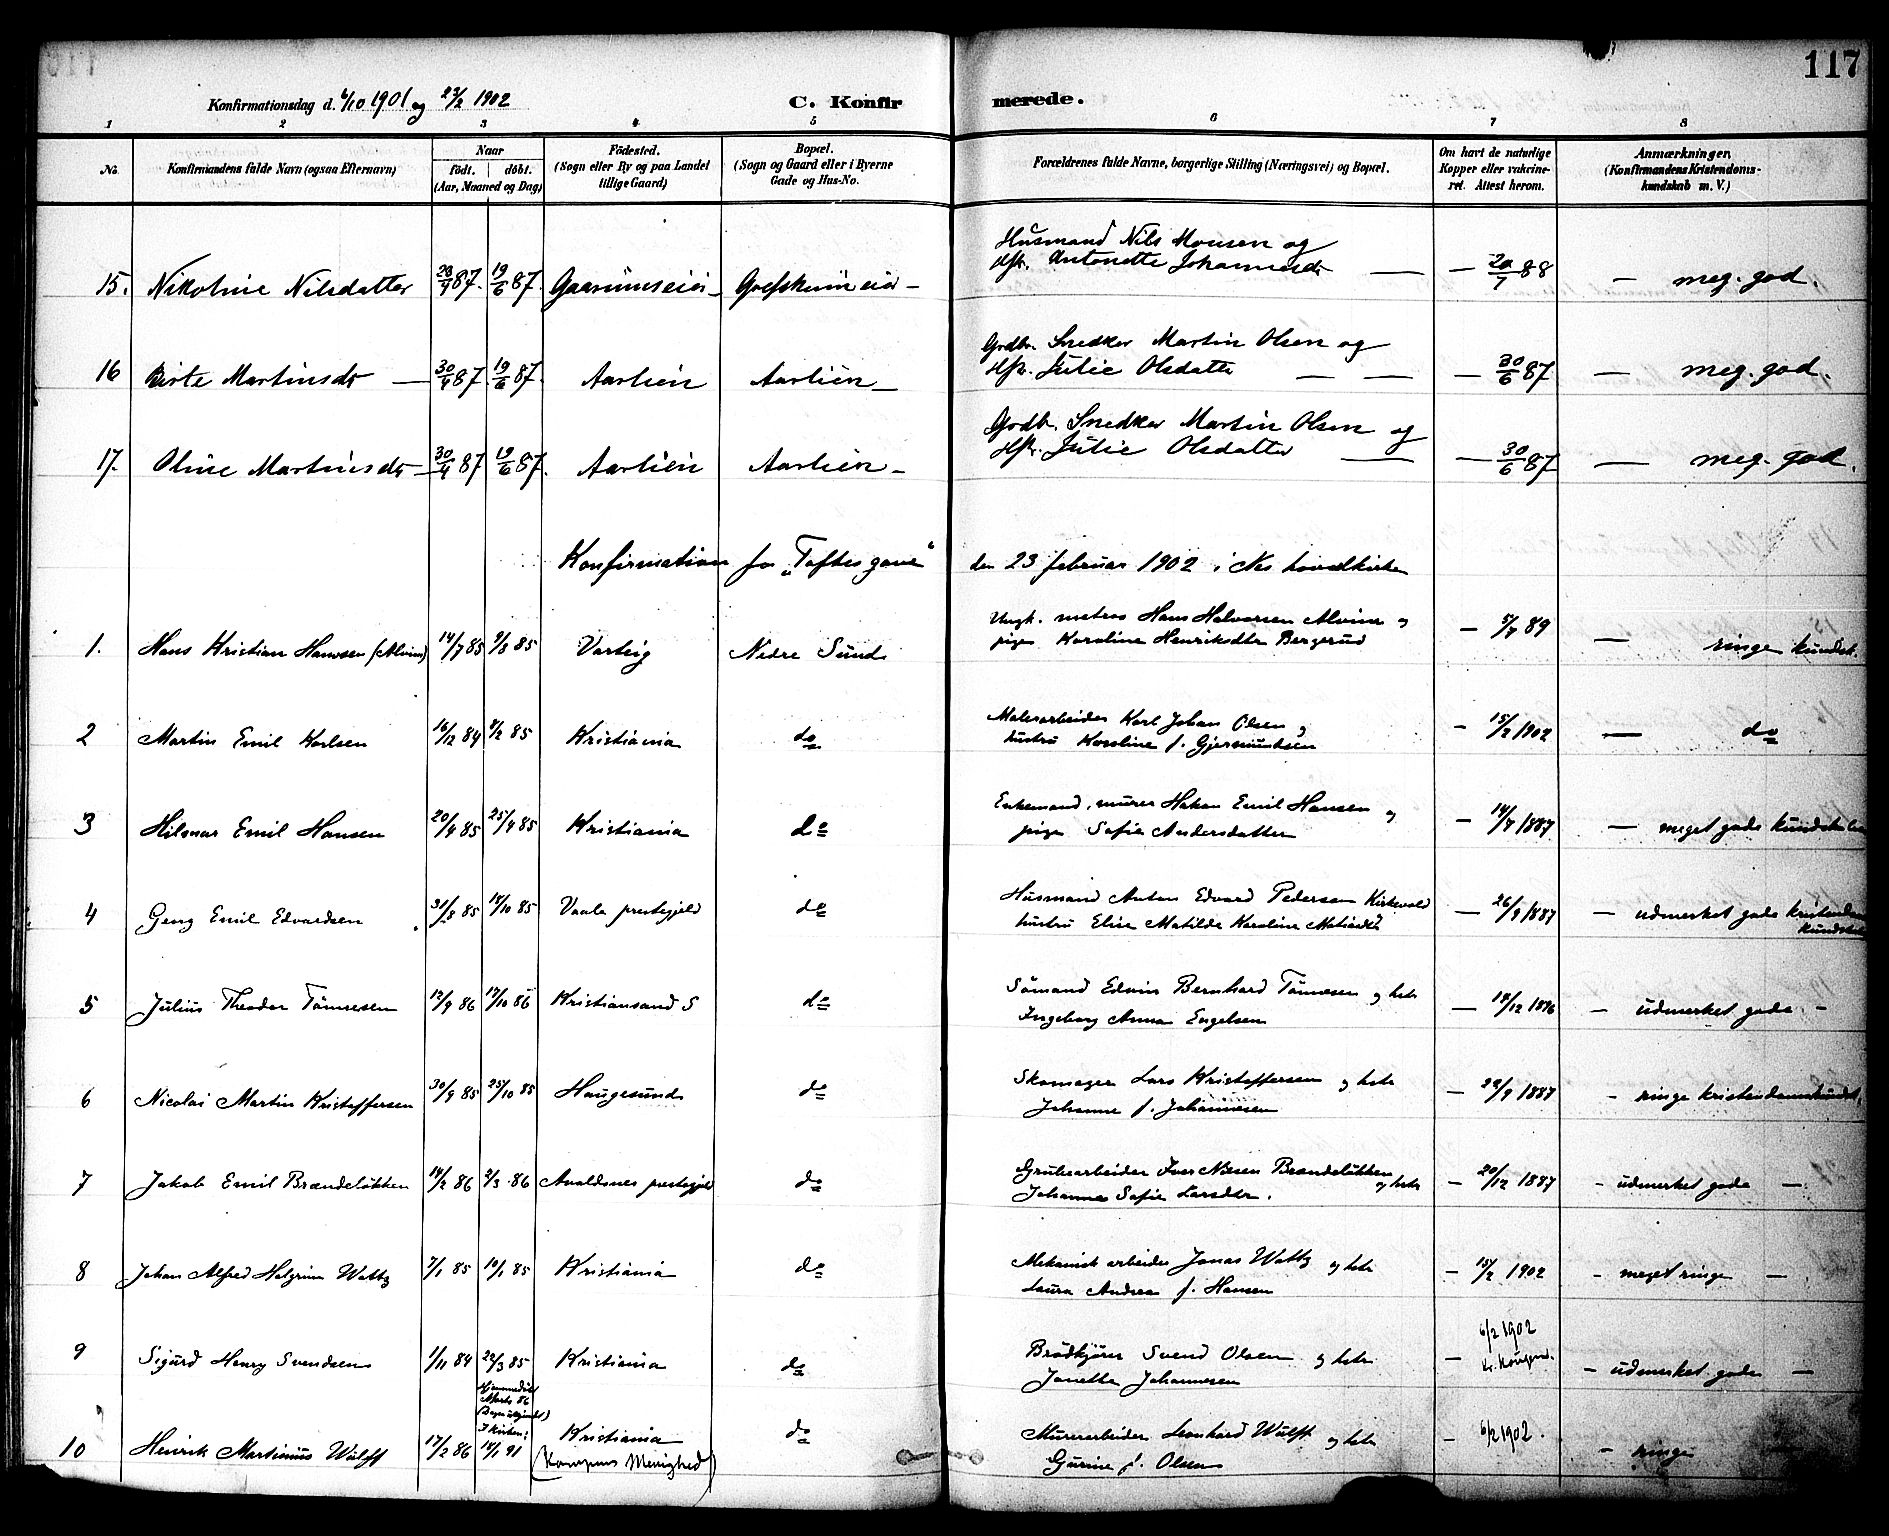 117
Konfirmationsdag d. 6/10 1901 og 23/2 1902
C. Konfirmerede.
1 2 3 4 5 6 7 8
No.
Konfirmandens fulde Navn (ogsaa Efternavn)
Naar
født. døbt.
(Aar, Maaned og Dag)
Fødested.
(Sogn eller By og paa Landet
tillige Gaard)
Bopæl.
(Sogn og Gaard eller i Byerne
Gade og Hus-No.
Forældrenes fulde Navne, borgerlige Stilling (Næringsvei) og Bopæl.
Om havt de naturlige
Kopper eller vakcine-
ret. Attest herom.
Anmærkninger.
(Konfirmandens Kristendoms-
kundskab m. V.)
Husmand Nils Monsen og
15. Nikoline Nilsdatter 28/4 87. 19/6 87. Hst. Antonette Johannesdt — — 20/7 88 — meg. god.
Godbr. Snedker Martin Olsen og
16 Birte Martinsdt — 30/4 87. 19/6 87. Aarlien Aarlien — Hst. Julie Olsdatter — — — 30/6 87 — meg. god.
Godb. Snedker Martin Olsen og
17. Oline Martinsdt — 30/4 87 19/6 87. Aarlien Aarlien — Hst. Julie Olsdatter — — 30/6 87 — meg. god.
Konfirmation for „Toftes gave" den 23 februar 1902 i Nes hovedkirke
Ungk. matros Hans Halvorsen Alvim og
1. Hans Kristian Hanssen (Alvim) 14/7 85 9/8 85 Varteig Nedre Sund pige Karoline Henriksdtr Bergerud — 5/7 89 — ringe kundsk.
Malerarbeider Karl Johan Olsen og
2 Martin Emil Karlsen 16/12 84 8/2 85 Kristiania do hustru Karoline f. Gjermundsen — 15/2 1902 — do
Enkemand, murer Hakon Emil Hansen og
3 Hilmar Emil Hansen 20/4 85 25/4 85 Kristiania do pige Sofie Andersdatter — 14/7 1887 — meget gode kundskaber
Husmand Anton Edvard Pedersen Kirkevold
4 Georg Emil Edvardsen 31/8 85 18/10 85 Vaale prestegjeld do hustru Elise Matilde Karoline Matisdtr — 26/9 1887 — udmerket gode kristendoms
kundskab
Sømand Edvin Bernhard Tønnesen og hstr
5 Julius Theodor Tønnesen 12/9 86 17/10 86 Kristiansand S do Ingeborg Anna Engelsen — 18/12 1896 — udmerket gode. —
Skomager Lars Kristoffersen og hstr
6 Nicolai Martin Kristoffersen 30/9 85 25/10 85 Haugesund do Johanne f. Johannesen — 22/9 1887 — ringe kristendomskundsk.
Grubearbeider Iver Nilsen Brændeløkken og hstr
7 Jakob Emil Brændeløkken 14/2 86 2/3 86 Avaldsnes prestegjeld do Johanne Sofie Larsdtr. — 20/12 1887 — udmerket gode —
Mekanisk arbeider Jonas Waltz og hstr
8 Johan Alfred Halgrim Waltz 7/1 85 10/1 85 Kristiania do Laura Andrea f. Hansen — 15/2 1902 — meget ringe —
Brødkjører Svend Olsen og hstr
9 Sigurd Henry Svendsen 1/11 84 22/3 85 Kristiania do Janette Johannesen — 6/2 1902 — udmerket gode —
Hjemmedøbt
Marts 86
I kirken:
Murerarbeider Leonhard Wulff og hstr
10 Henrik Martinius Wulff 17/2 86 18/1 91 Kristiania do Gurine f. Olsen — 6/2 1902. — ringe
(Kampens Menighed)